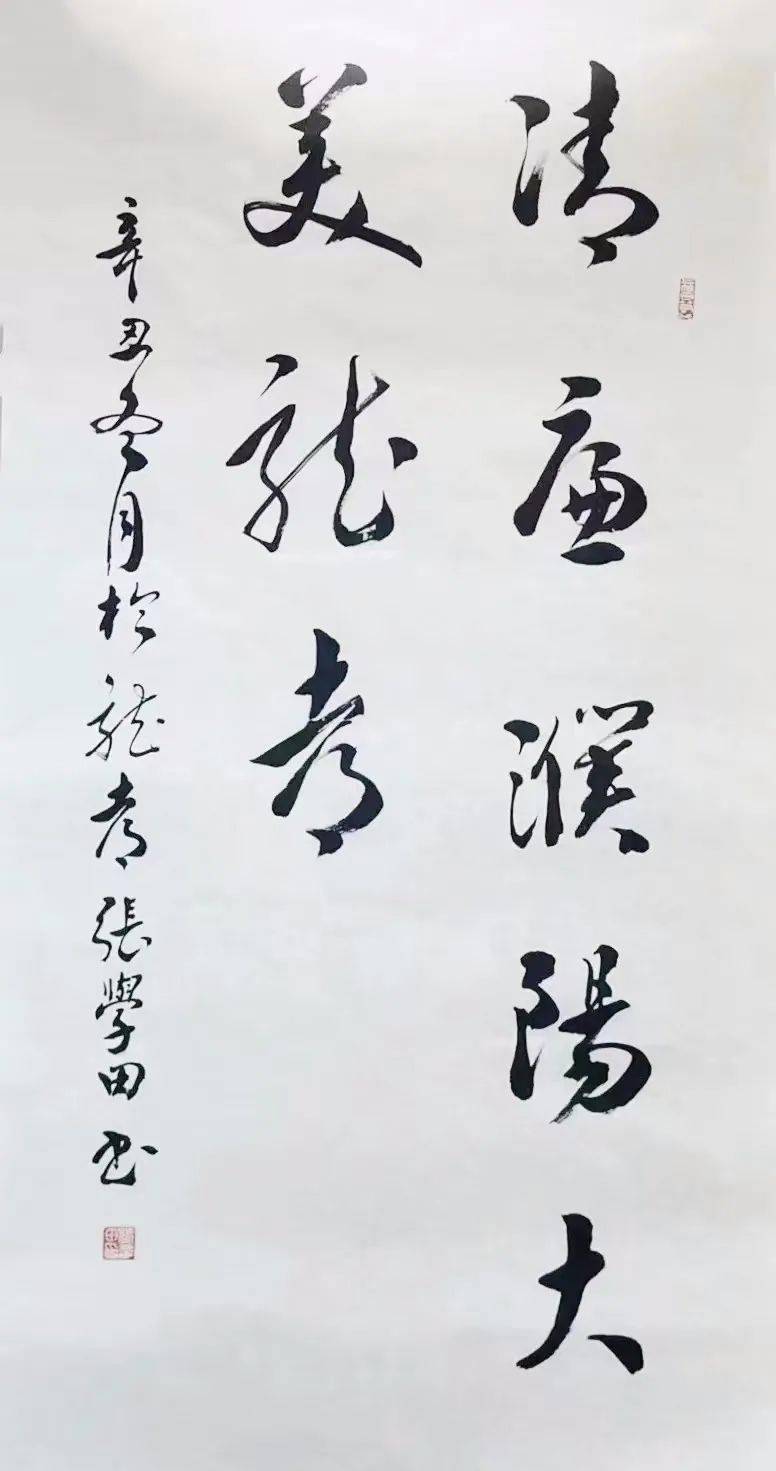 清廉濮陽大
美龍都
辛丑冬月於龍都張學田書